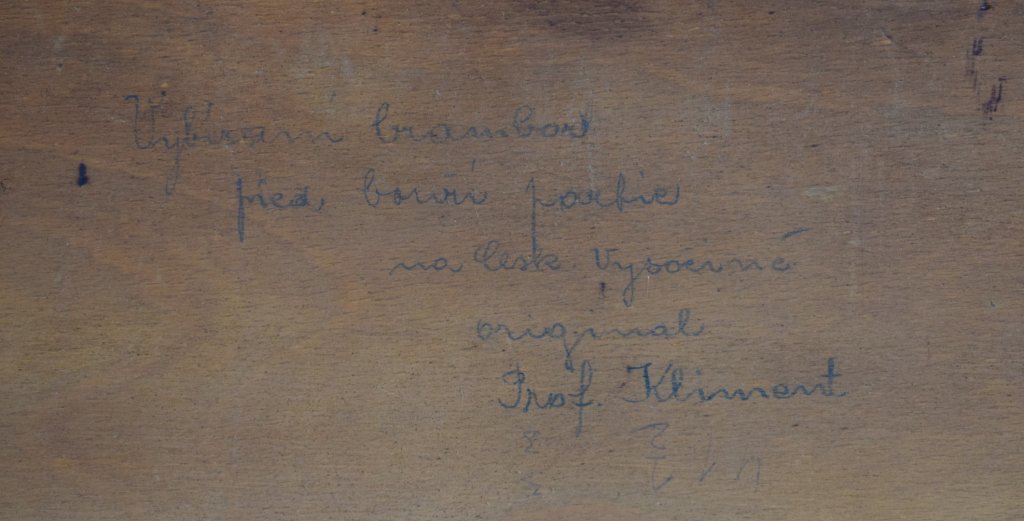 Vybíraní brambor
před, bouří partie
na česk. Vysočině
original
Prof. Kliment